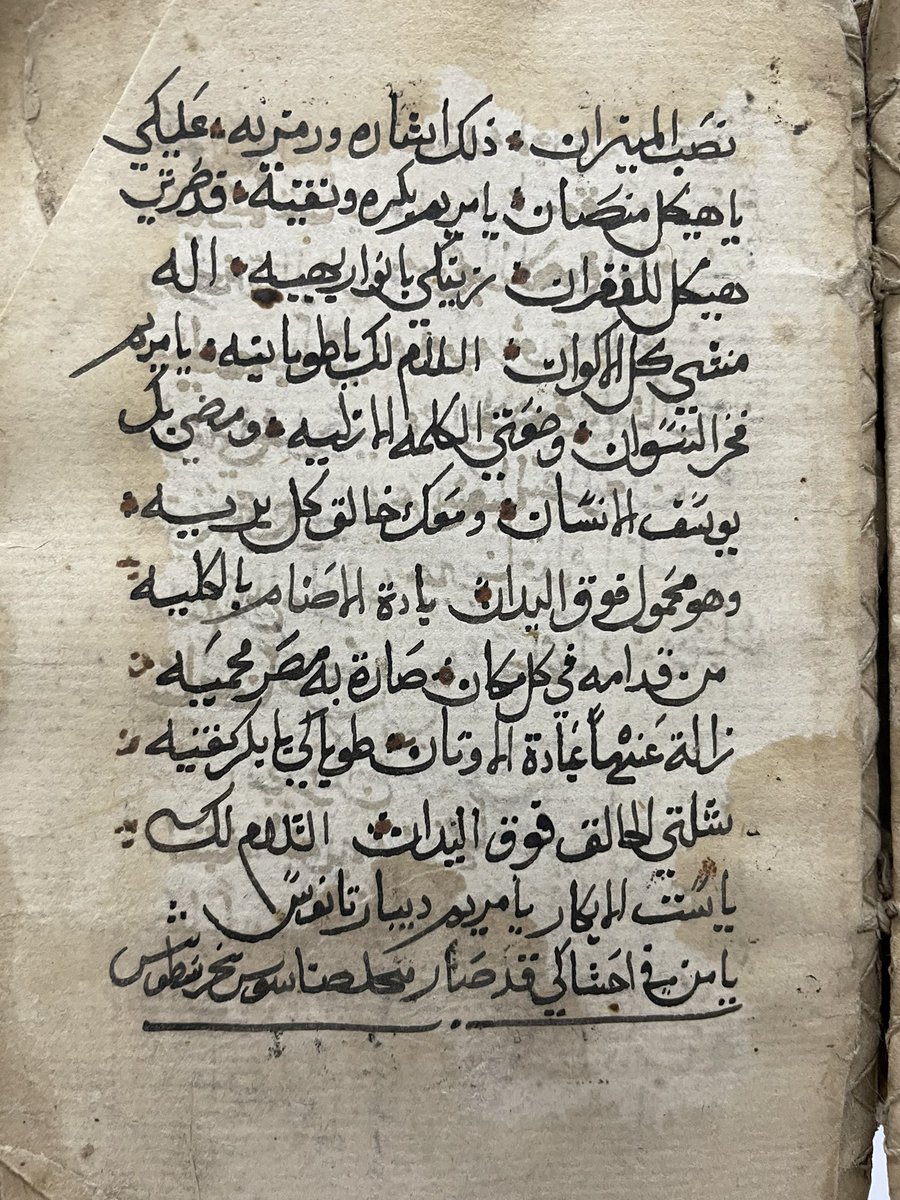 نصَب الميزان • ذلك اشاره ورمزيه • عَليكي
يا هيكل منصَان • يا مريم بكره ونقيَّة • قد صَرتي
هيكل للغفران • زينتكي بانوار بهيه • اله
منشي كل الاكوان • السلام لك يا طوبانيه • يا مريم
فخر النسَوان • وضعَتي الكلمه الازليه • ومضي بك
يوسَف الانسَان • ومَعك خالق كل بريه •
وهو محمول فوق اليدان • بادة الاصَنام بالكليه
من قدامه في كل مكان • صَارة به مصَر محميَه
زالة عَنهاً عبَادة الاوتان • طوباكي يا بكر نقيه
شلتي الخالق فوق اليدان • السَّلام لك
يا سَت الابكار يا مريم ديبارتانوسً
يا من في احشاكي قد صَار بيخلصاسوس بيخرسطوس